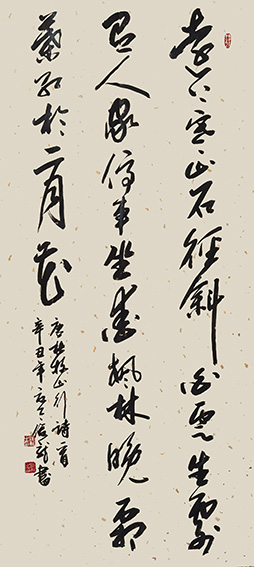 遠上寒山石徑斜白雲生處
有人家停車坐愛楓林晚霜
葉紅於二月花
唐杜牧山行詩一首
辛丑年書